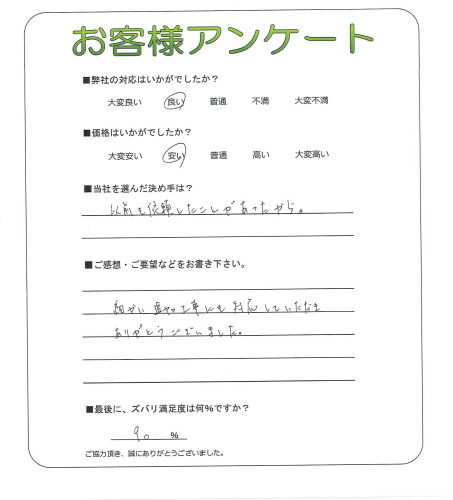 お客様アンケート
■弊社の対応はいかがでしたか?
大変良い 良い 普通 不満 大変不満
■価格はいかがでしたか?
大変安い 安い 普通 高い 大変高い
■当社を選んだ決め手は?
以前も依頼したことがあったから。
■ご感想・ご要望などをお書き下さい。
細かい 工事にも対応していただき
ありがとうございました。
■最後に、ズバリ満足度は何%ですか?
90 %
ご協力頂き、誠にありがとうございました。